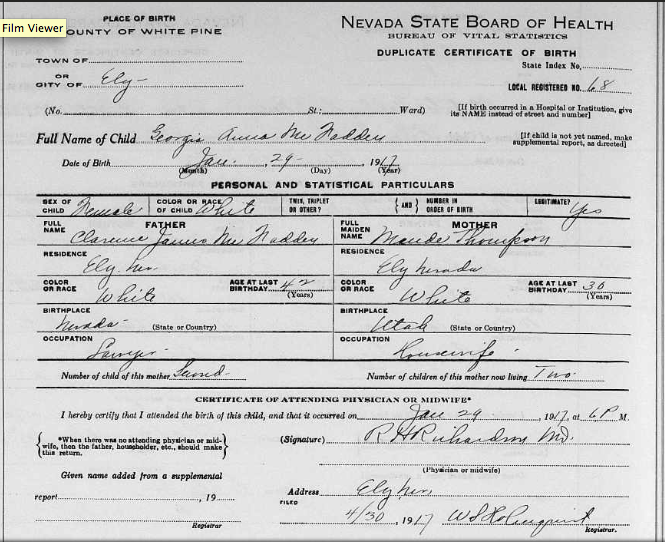 PLACE OF BIRTH
Film Viewer
COUNTY OF WHITE PINE
NEVADA STATE BOARD OF HEALTH
BUREAU OF VITAL STATISTICS
DUPLICATE CERTIFICATE OF BIRTH
TOWN OF
State Index No.
OR
CITY OF Ely
LOCAL REGISTERED NO. 68
(No. St.; Ward)
[If birth occurred in a Hospital or Institution, give its NAME instead of street and number]
Full Name of Child Georgia Anna Mc Fadden
[If child is not yet named, make supplemental report, as directed]
Date of Birth Jan. 29 1917
(Month) (Day) (Year)
PERSONAL AND STATISTICAL PARTICULARS
SEX OF CHILD Female COLOR OR RACE OF CHILD White TWIN, TRIPLET OR OTHER? { AND } NUMBER IN ORDER OF BIRTH LEGITIMATE? Yes
FULL NAME FATHER Clarence James Mc Fadden
FULL MAIDEN NAME MOTHER Maude Thompson
RESIDENCE Ely Nev.
RESIDENCE Ely Nevada
COLOR OR RACE White AGE AT LAST BIRTHDAY 42 (Years)
COLOR OR RACE White AGE AT LAST BIRTHDAY 30 (Years)
BIRTHPLACE Nevada (State or Country)
BIRTHPLACE Utah (State or Country)
OCCUPATION Lawyer
OCCUPATION Housewife
Number of child of this mother Second
Number of children of this mother now living Two
CERTIFICATE OF ATTENDING PHYSICIAN OR MIDWIFE*
I hereby certify that I attended the birth of this child, and that it occurred on Jan 29 1917, at 6 P M.
{ *When there was no attending physician or midwife, then the father, householder, etc., should make this return. }
(Signature) R H Richardson MD.
(Physician or midwife)
Given name added from a supplemental
report , 19
Registrar
Address Ely Nev
FILED 4/30 1917
Registrar.